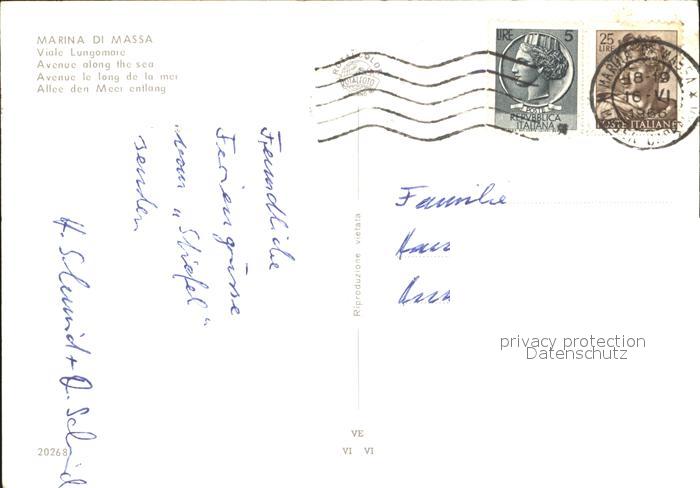 MARINA DI MASSA
Viale Lungomare
Avenue along the sea
Avenue le long de la mer
Allee den Meer entlang
LIRE 5
POSTE
REPVBBLICA
ITALIANA
25
LIRE
POSTE ITALIANE
18-19
16 VI
Freundliche
Feriengrüsse
vom „Stiefel“
senden
H. Schmid +
Familie
Riproduzione vietata
privacy protection
Datenschutz
20268
VE
VI VI